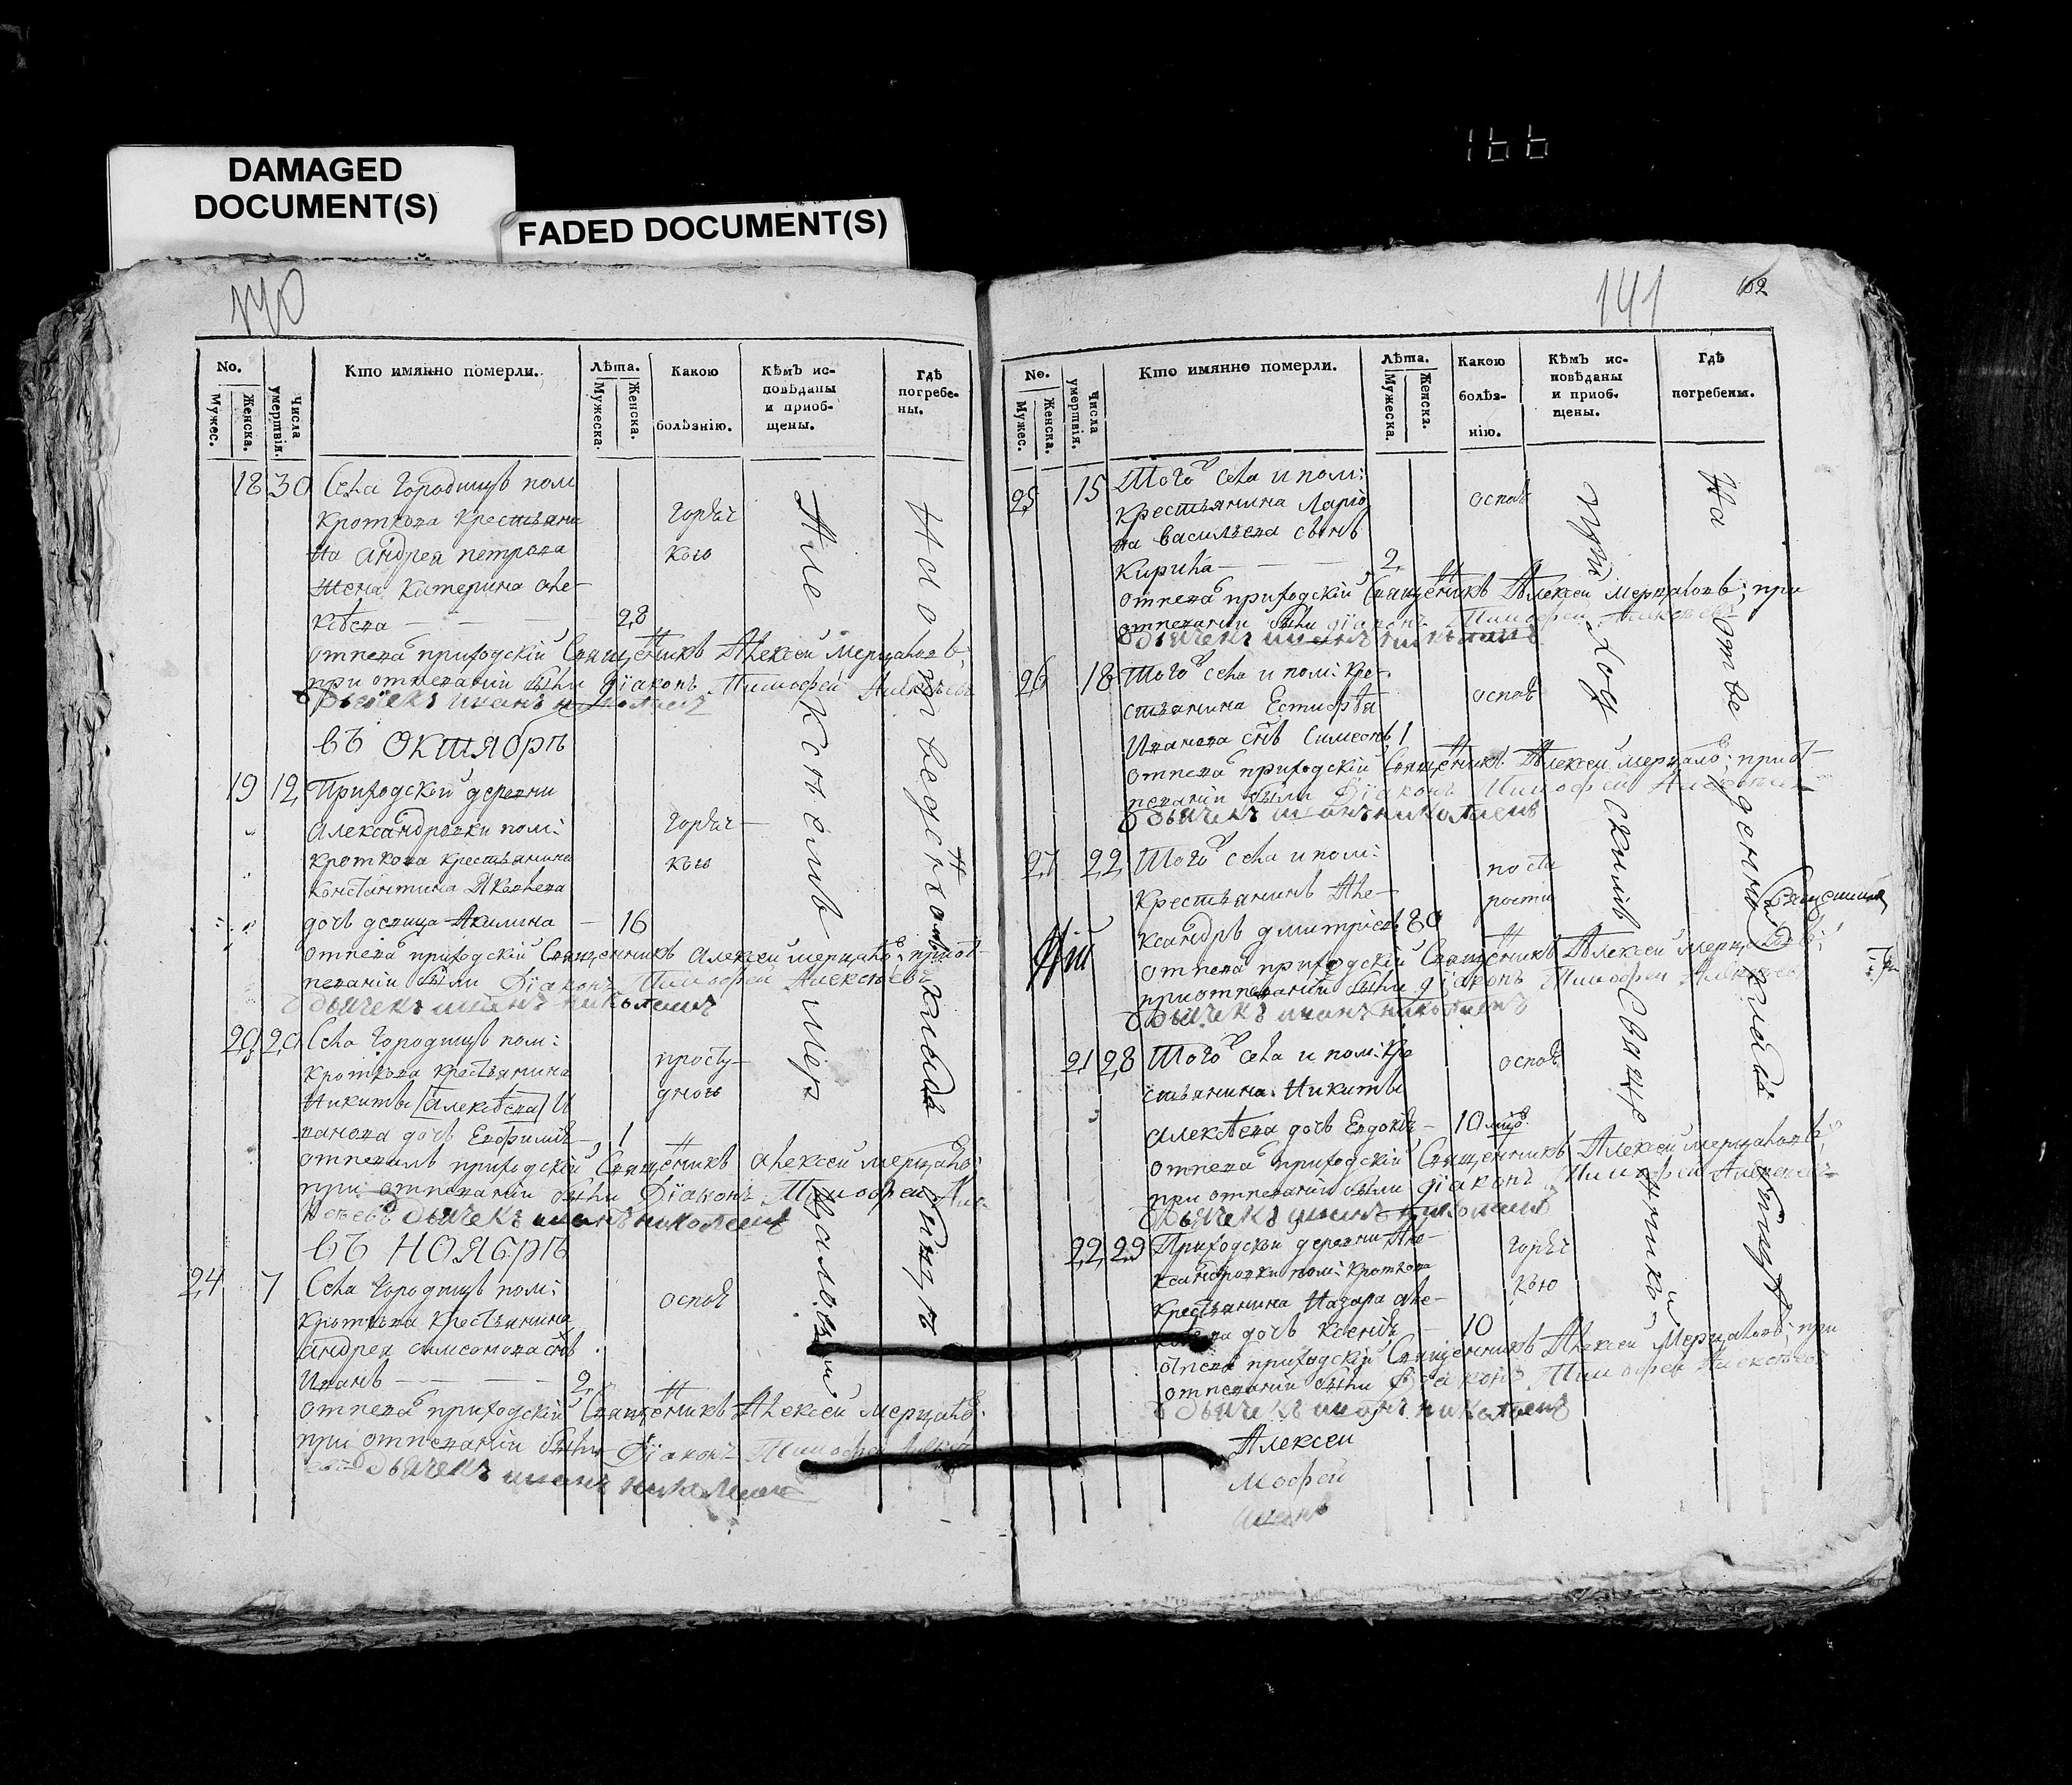 DAMAGED
DOCUMENT(S)
FADED DOCUMENT(S)
166
140
No.
Мужес.
Женска.
Числа умертвія.
Кто имянно померли.
Лѣта.
Мужеска.
Женска.
Какою
болѣзнію.
Кѣмъ ис-
повѣданы
и пріоб-
щены.
Гдѣ
погребе-
ны.
18 30 Села Городищъ пом
Кроткова Крестьяни
на Андрея Петрова
жена Катерина але-
ксѣева — — — 28
горяч
кою
отпева приходскій Священникъ Алексей Мерцаловъ;
при отпеваніи были Діаконъ Тимофей Алексѣевъ
дьячекъ иванъ николаевъ
въ октябрѣ
19 12 Приходской деревни
Александровки пом:
кроткова крестьянина
константина Яковлева
дочь девица Акилина — 16
горяч—
кою
отпева приходскій Священникъ алексеи мерцало: приот-
певаніи были Діаконъ Тимофей Алексѣевъ
дьячекъ иванъ николаевъ
20 20 Села Городищъ пом:
кроткова крестьянина
Никиты (алексѣева) И
ванова дочь Евфимія— 1
просту—
дною
отпевалъ приходскій Священникъ алексей мерцало:
при отпеваніи были Діаконъ Тимофей Але-
ксѣевъ дьячекъ иванъ николаевъ
въ ноябрѣ
24 7 Села Городищъ пом:
кроткова крестьянина
андрея самсонова снъ
Иванъ — — — — 2
оспою
отпева приходскій Священникъ Алексей мерцало:
при отпеваніи были Діаконъ Тимофей Алексѣ
евъ дьячекъ иванъ николаевъ
Алексѣемъ Мерцаловым
На отведенномъ кладбищѣ
141
102
No.
Мужес.
Женска.
Числа умертвія.
Кто имянно померли.
Лѣта.
Мужеска.
Женска.
Какою
болѣз-
нію.
Кѣмъ ис-
повѣданы
и пріоб-
щены.
Гдѣ
погребены.
25 15 Того села и пом:
крестьянина Ларіо
на васильева сынъ
Кирила — — — 2
оспою
отпева приходскій Священникъ Алексеи Мерцаловъ; при
отпеваніи были діаконъ Тимофей Алексѣевъ
дьячекъ иванъ николаевъ
26 18 Того села и пом: кре-
стьянина Естифѣя
Иванова снъ Симеонъ 1
оспою
отпева приходскій Священникъ Алексеи мерцало: приот—
певаніи были Діаконъ Тимофей Алексѣевъ
дьячекъ иванъ николаевъ
27 22 Того села и пом:
крестьянинъ Але—
ксандръ дмитріевъ 80
по ста
рости
отпева приходскій Священникъ Алексеи мерцаловъ;
приотпеваніи были діаконъ Тимофеи Алексѣевъ
дьячекъ иванъ николаевъ
21 28 Того села и пом: кре
стьянина Никиты
алексѣева дочь Евдокія — 10
оспою
отпева приходскій Священникъ Алексеи мерцаловъ;
при отпеваніи были діаконъ Тимофей Алексѣевъ
дьячекъ иванъ николаевъ
22 29 Приходской деревни Але—
ксандровки пом: кроткова
крестьянина Назара але—
дочь Ксенія — 10
горяч
кою
отпева приходскій Священникъ Алексей Мерцаловъ; при
отпеваніи были Діаконъ Тимофей Алексѣевъ
дьячекъ иванъ николаевъ
приходскимъ Священником
На отведенном кладбищѣ
Священникъ
Алексеи
мофей
иванъ